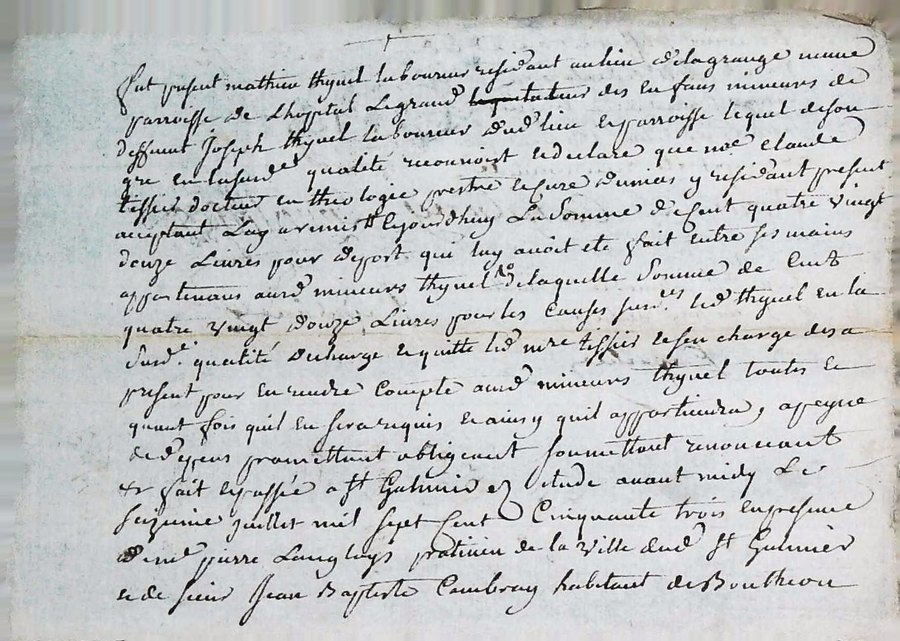 fut present mathieu thynel laboureur residant au lieu de lagrange meme
parroisse de Lhopital Legrand des enfans mineures de
deffunt Joseph thynel laboureur dud lieu et parroisse lequel de son
gre en lasusde qualité reconnoist et declare que me claude
tessier docteur en theologie prestre et cure y residant present
acceptant Luy a remis et cejourdhuy La Somme de Cent quatre vingt
douze Livres pour deport qui luy avoit ete fait entre ses mains
appartenans ausd mineurs thynel de laquelle Somme de Cent
quatre vingt douze Livres pour les Causes susdes led thynel en la
susde qualité decharge et quitte led mre tessier et sen charge des a
present pour en rendre Compte ausd mineurs thynel toutes et
quant fois quil en sera requis et ainsy quil appartiendra, a peyne
de depens promettant obligeant soumettant renonceant
&c fait et passée a St Galmier ez etude avant midy Le
seizieme juillet mil sept Cent Cinquante trois en presence
de me pierre Langloys praticien de la ville dud St Galmier
et de sieur Jean Baptiste Cambray habitant de Boutheon